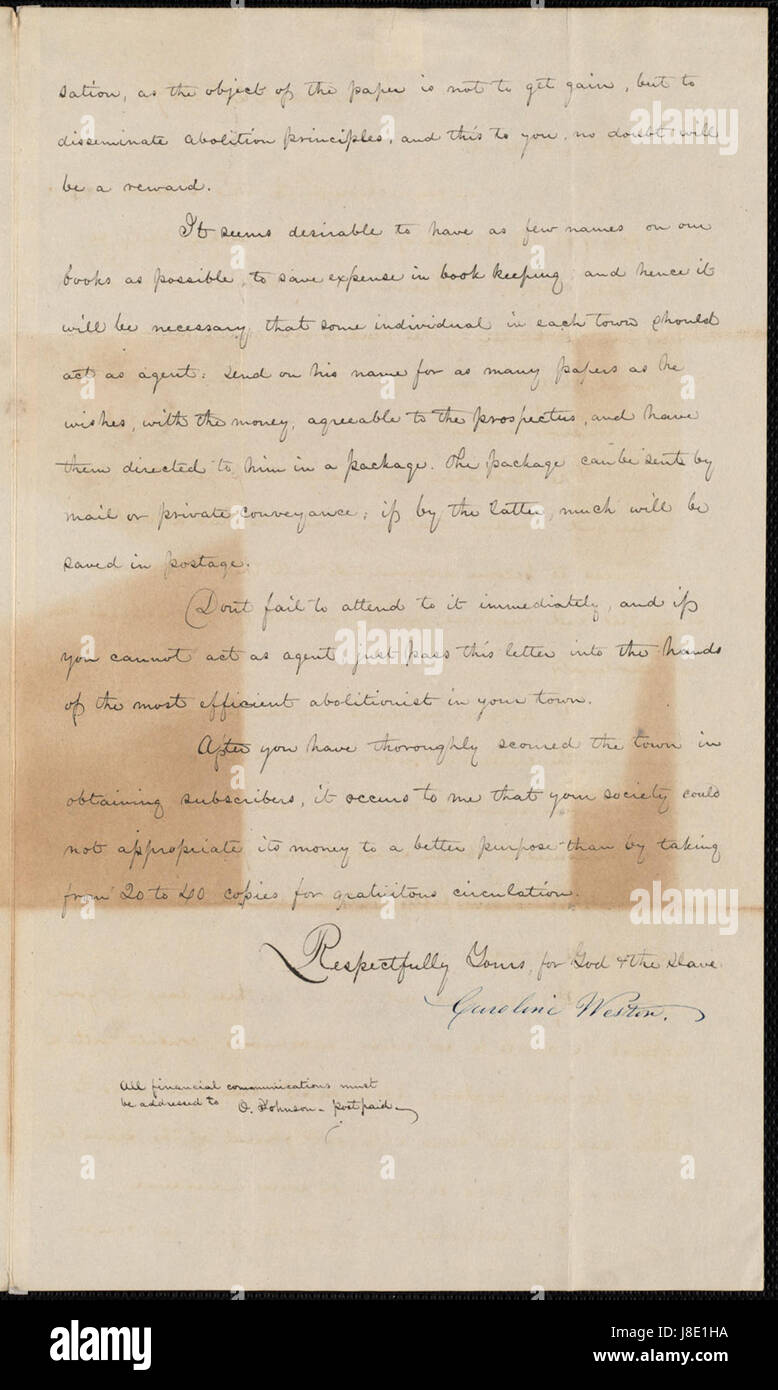 sation, as the object of the paper is not to get gain, but to
disseminate abolition principles, and this to you, no doubt will
be a reward.
It seems desirable to have as few names on our
books as possible, to save expense in book keeping, and hence it
will be necessary, that some individual in each town should
act as agent: send on his name for as many papers as he
wishes, with the money, agreeable to the prospectus, and have
them directed to him in a package. The package can be sent by
mail or private conveyance; if by the latter, much will be
saved in postage.
Dont fail to attend to it immediately, and if
you cannot act as agent, just pass this letter into the hands
of the most efficient abolitionist in your town.
After you have thoroughly scoured the town in
obtaining subscribers, it occurs to me that your society could
not appropriate its money to a better purpose than by taking
from 20 to 40 copies for gratuitous circulation.
Respectfully Yours, for God & the slave.
Caroline Weston.
All financial communications must
be addressed to O. Johnson - postpaid
alamy
alamy stock photo
J8E1HA
www.alamy.com